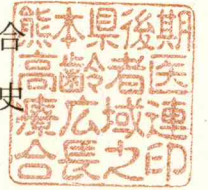 合
史
熊本県後期
高齢者医
療広域連
合長之印